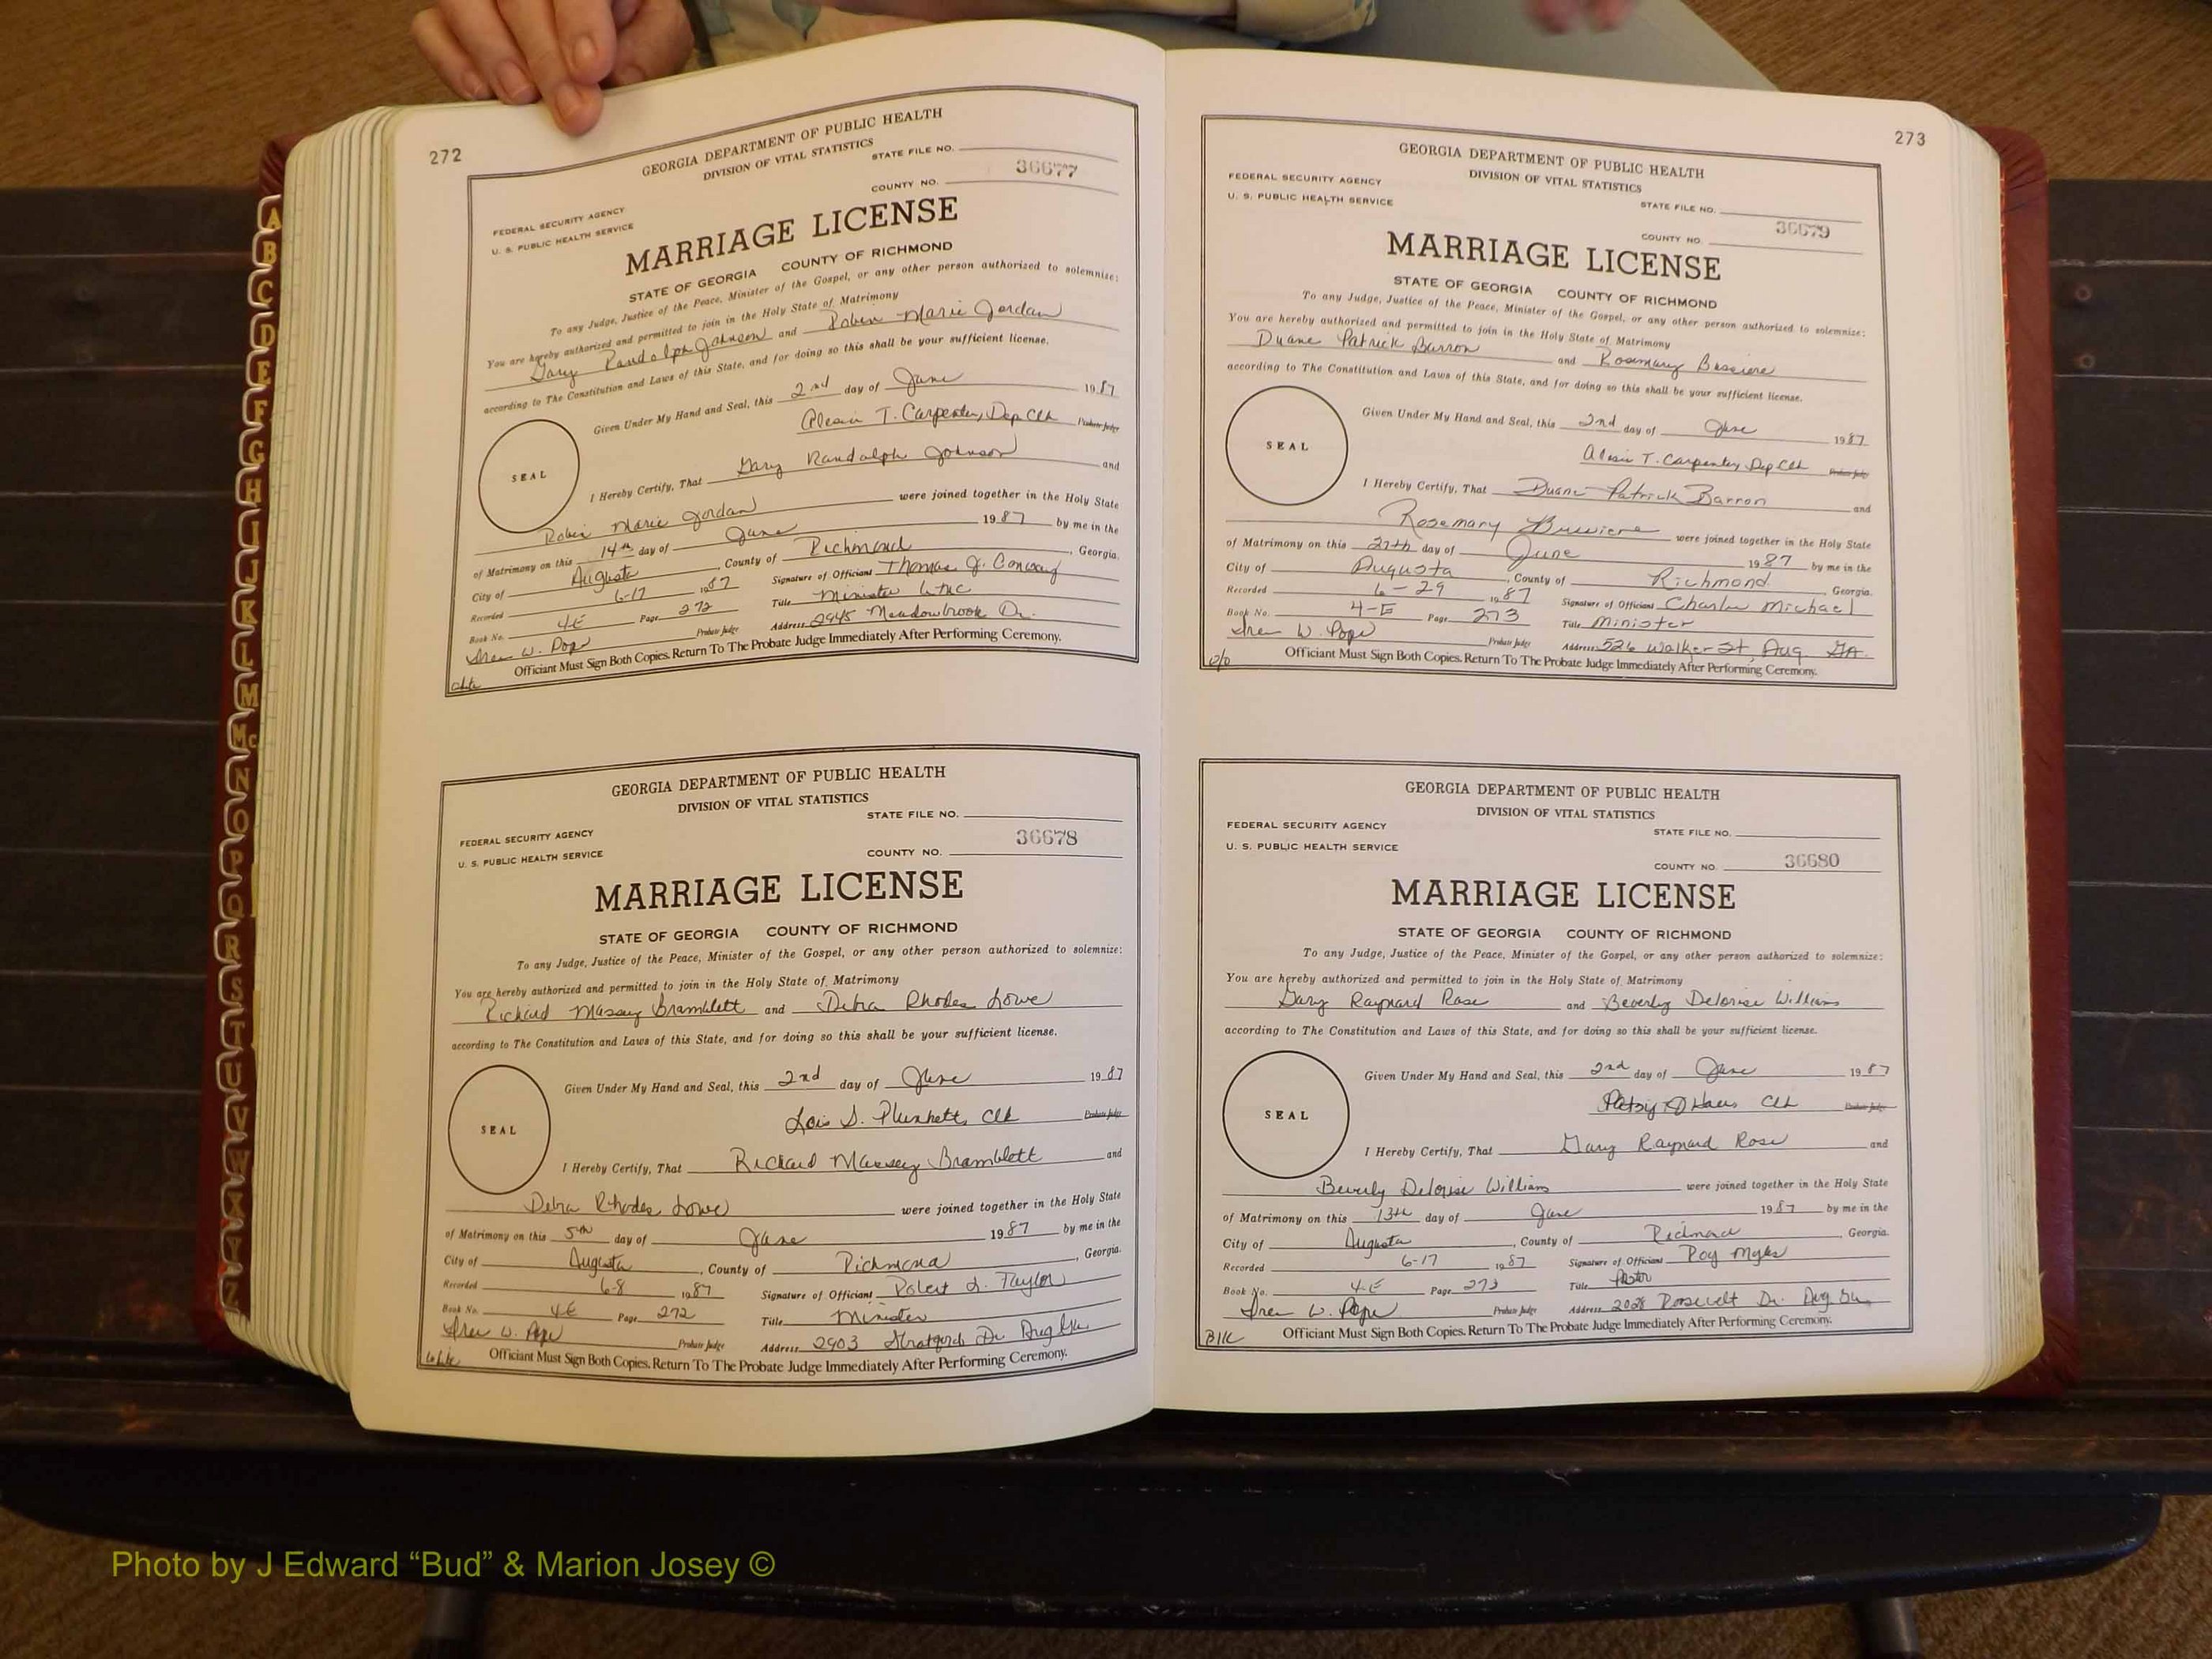 272
GEORGIA DEPARTMENT OF PUBLIC HEALTH
DIVISION OF VITAL STATISTICS
STATE FILE NO.
36677
COUNTY NO.
FEDERAL SECURITY AGENCY
U. S. PUBLIC HEALTH SERVICE
MARRIAGE LICENSE
STATE OF GEORGIA COUNTY OF RICHMOND
To any Judge, Justice of the Peace, Minister of the Gospel, or any other person authorized to solemnize:
You are hereby authorized and permitted to join in the Holy State of Matrimony
Gary Randolph Johnson and Robin Marie Jordan
according to The Constitution and Laws of this State, and for doing so this shall be your sufficient license.
Given Under My Hand and Seal, this 2nd day of June 1987
T. Carpenter, Dep Clk Probate Judge
SEAL
I Hereby Certify, That Gary Randolph Johnson and
Robin Marie Jordan were joined together in the Holy State
of Matrimony on this 14th day of June 1987 by me in the
City of Augusta, County of Richmond, Georgia.
Recorded 6-17 1987 Signature of Officiant Thomas J. Conway
Book No. 4E Page 272 Title Minister
Address 2945 Meadowbrook Dr.
W. Pope Probate Judge
Officiant Must Sign Both Copies. Return To The Probate Judge Immediately After Performing Ceremony.
GEORGIA DEPARTMENT OF PUBLIC HEALTH
DIVISION OF VITAL STATISTICS
STATE FILE NO.
FEDERAL SECURITY AGENCY
U. S. PUBLIC HEALTH SERVICE
36678
COUNTY NO.
MARRIAGE LICENSE
STATE OF GEORGIA COUNTY OF RICHMOND
To any Judge, Justice of the Peace, Minister of the Gospel, or any other person authorized to solemnize:
You are hereby authorized and permitted to join in the Holy State of Matrimony
Richard Massey Bramblett and Debra Rhodes Lowe
according to The Constitution and Laws of this State, and for doing so this shall be your sufficient license.
Given Under My Hand and Seal, this 2nd day of June 1987
Lois S. Plunkett, Clk Probate Judge
SEAL
I Hereby Certify, That Richard Massey Bramblett and
Debra Rhodes Lowe were joined together in the Holy State
of Matrimony on this 5th day of June 1987 by me in the
City of Augusta, County of Richmond, Georgia.
Recorded 6-8 1987 Signature of Officiant Robert L. Taylor
Book No. 4E Page 272 Title Minister
W. Pope Probate Judge Address 2903 Stratford Dr Aug Ga
White Officiant Must Sign Both Copies. Return To The Probate Judge Immediately After Performing Ceremony.
273
GEORGIA DEPARTMENT OF PUBLIC HEALTH
DIVISION OF VITAL STATISTICS
FEDERAL SECURITY AGENCY
U. S. PUBLIC HEALTH SERVICE
STATE FILE NO.
36679
COUNTY NO.
MARRIAGE LICENSE
STATE OF GEORGIA COUNTY OF RICHMOND
To any Judge, Justice of the Peace, Minister of the Gospel, or any other person authorized to solemnize:
You are hereby authorized and permitted to join in the Holy State of Matrimony
Duane Patrick Barron and Rosemary
according to The Constitution and Laws of this State, and for doing so this shall be your sufficient license.
Given Under My Hand and Seal, this 2nd day of June 1987
T. Carpenter, Dep Clk Probate Judge
SEAL
I Hereby Certify, That Duane Patrick Barron and
Rosemary were joined together in the Holy State
of Matrimony on this 27th day of June 1987 by me in the
City of Augusta, County of Richmond, Georgia.
Recorded 6-29 1987 Signature of Officiant Charles Michael
Book No. 4-E Page 273 Title Minister
W. Pope Probate Judge Address 526 Walker St, Aug. GA.
Officiant Must Sign Both Copies. Return To The Probate Judge Immediately After Performing Ceremony.
GEORGIA DEPARTMENT OF PUBLIC HEALTH
DIVISION OF VITAL STATISTICS
FEDERAL SECURITY AGENCY
STATE FILE NO.
U. S. PUBLIC HEALTH SERVICE
36680
COUNTY NO.
MARRIAGE LICENSE
STATE OF GEORGIA COUNTY OF RICHMOND
To any Judge, Justice of the Peace, Minister of the Gospel, or any other person authorized to solemnize:
You are hereby authorized and permitted to join in the Holy State of Matrimony
Gary Raynard Rose and Beverly Delorise Williams
according to The Constitution and Laws of this State, and for doing so this shall be your sufficient license.
Given Under My Hand and Seal, this 2nd day of June 1987
Patsy Clk Probate Judge
SEAL
I Hereby Certify, That Gary Raynard Rose and
Beverly Delorise Williams were joined together in the Holy State
of Matrimony on this 13th day of June 1987 by me in the
City of Augusta, County of Richmond, Georgia.
Recorded 6-17 1987 Signature of Officiant Roy Myles
Book No. 4-E Page 273 Title Pastor
W. Pope Probate Judge Address 2028 Roosevelt Dr. Aug Ga.
Blk Officiant Must Sign Both Copies. Return To The Probate Judge Immediately After Performing Ceremony.
A
B
C
D
E
F
G
H
I
J
K
L
M
Mc
N
O
P
Q
R
S
T
U
V
W
X
Y
Z
Photo by J Edward “Bud” & Marion Josey ©